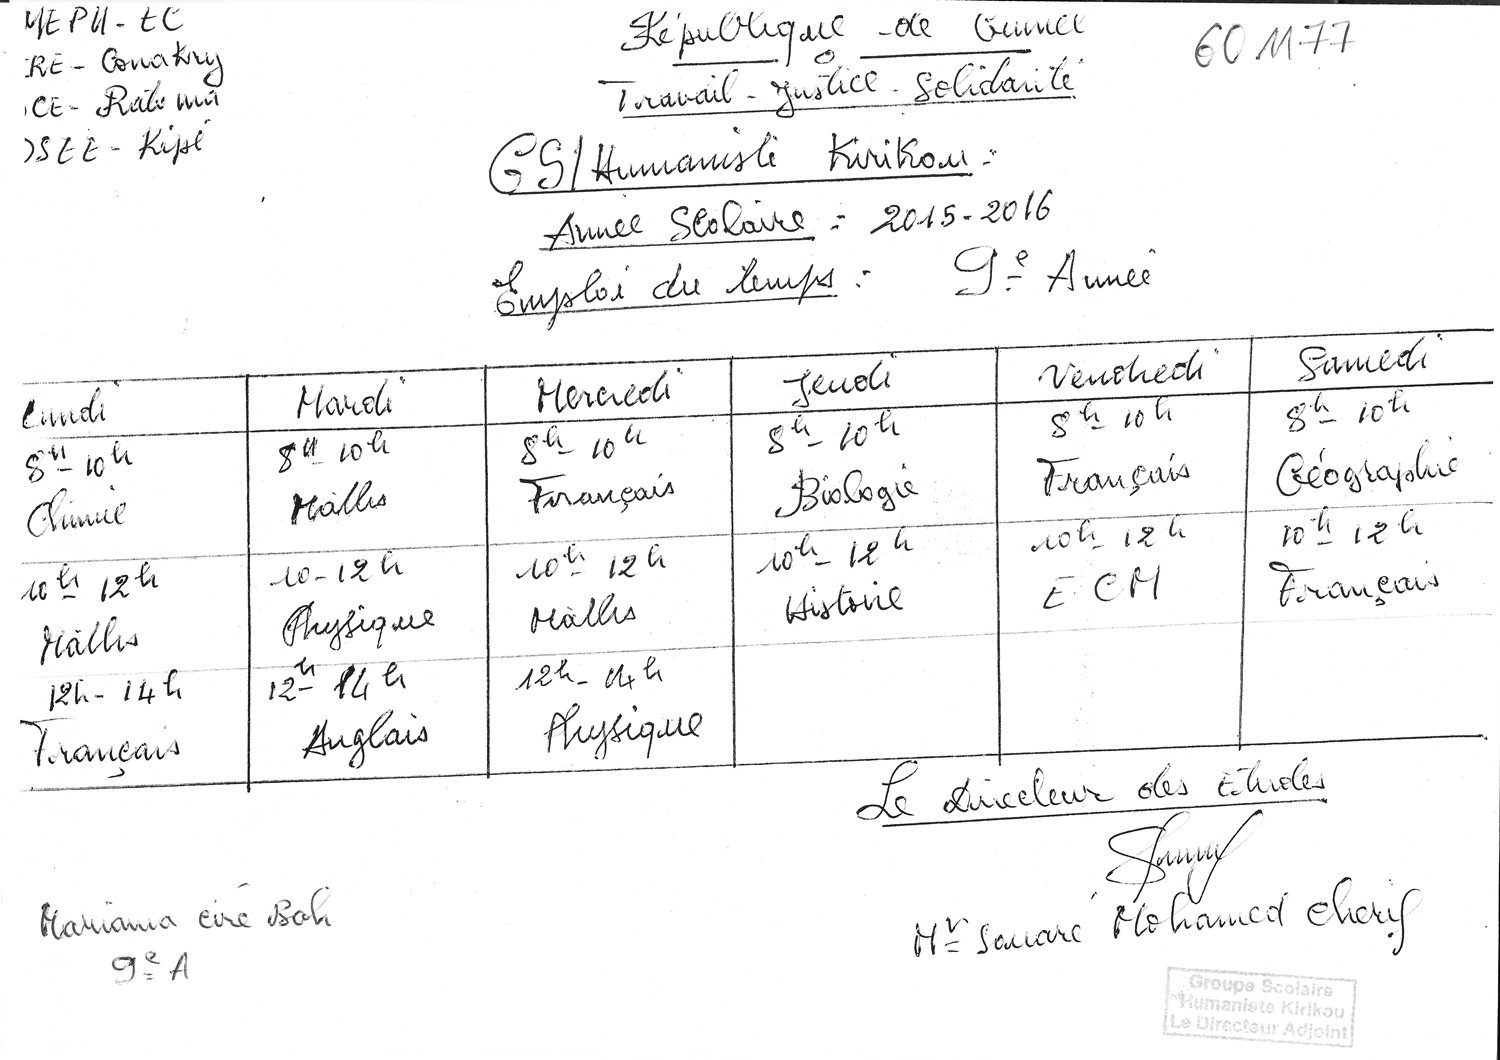 MEPU-EC
République de Guinée
601177
RE - Conakry
Travail - Justice - Solidarité
CE - Ratoma
DSEE - Kipé
GS/Humaniste Kirikou :
Année Scolaire : 2015-2016
Emploi du temps : 9e Année
Lundi Mardi Mercredi Jeudi Vendredi Samedi
8h-10h 8h-10h 8h-10h 8h-10h 8h-10h 8h-10h
Chimie Maths Français Biologie Français Géographie
10h-12h 10-12h 10h-12h 10h-12h 10h-12h 10h-12h
Maths Physique Maths Histoire ECM Français
12h-14h 12h-14h 12h-14h
Français Anglais Physique
Le Directeur des Etudes
Mariama ciré Bah
9e A
Mr Souaré Mohamed Cherif
Groupe Scolaire
Humaniste Kirikou
Le Directeur Adjoint